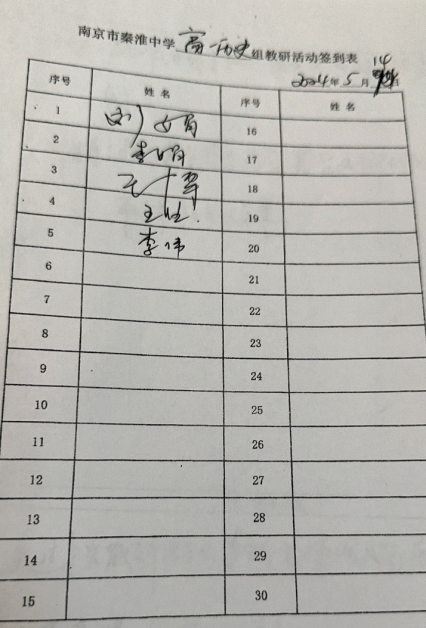 南京市秦淮中学高一历史组教研活动签到表
2024年5月14日
序号 姓名 序号 姓名
1 刘 16
2 李娟 17
3 18
4 王 19
5 李伟 20
6 21
7 22
8 23
9 24
10 25
11 26
12 27
13 28
14 29
15 30